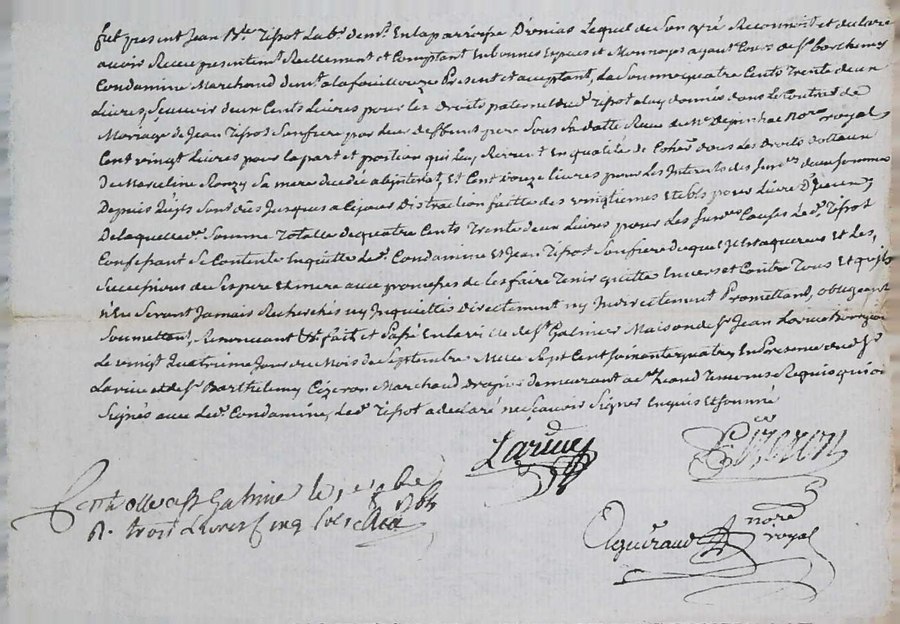 fut present Jean Bte Tissot Labr demt En la parroisse D'onias Lequel de son gré Reconnoit et declare
avoir Receu presentemt Reellement et Comptant En bonnes Especes et Monnoyes ayant Cours de Sr Barthelemy
Condamine Marchand demt a la fouillouze Present et acceptant, La Somme quatre Cents Trente deux
Livres, Scavoir deux Cents Livres pour les droits paternel dud Tissot a luy donnés dans le Contrat de
Mariage de Jean Tissot Son frere par leur deffunt pere Sous Sa datte Receu de Me nore royal
Cent vingt Livres pour la part et portion qui luy Revient En qualité de Coher dans les Droits
De Marceline Ronzy Sa mere decedée abintestat, Et Cent douze livres pour les Interets des Susdes deux sommes
Depuis Sont dus Jusques a Ce jour Distraction faitte des vingtiemes Et pour Livre D'Iceux
De laquelle de Somme Totalle de quatre Cents Trente deux Livres pour les Susdes Causes Led Tissot
Confessant Se Contente En quitte Led Condamine Et Jean Tissot Son frere Et Les
Successions de Ses pere Et mere avec promesses de les faire Tenir quitte Envers et Contre Tous Et qu'ils
n'En Seront Jamais Recherchés ny Inquiettés Directement ny Indirectement Promettant, obligeant
Soumettant, Renoncant &c fait et Passé En la ville de St Galmier Maison de Sr Jean Larive Bourgeois
Le vingt quatrieme Jour du Mois de Septembre Mil Sept Cent Soixante quatre, En Presence dud Sr
Larive et de Sr Barthelemy Cizeron Marchand demeurant a Temoins Requis qui ont
Signés avec Led Condamine, Led Tissot a declaré ne Scavoir Signer Enquis Et Sommé
Larive
Cizeron
Controllé a St Galmier le 1764
R. trois Livres Cinq Sols
nore royal